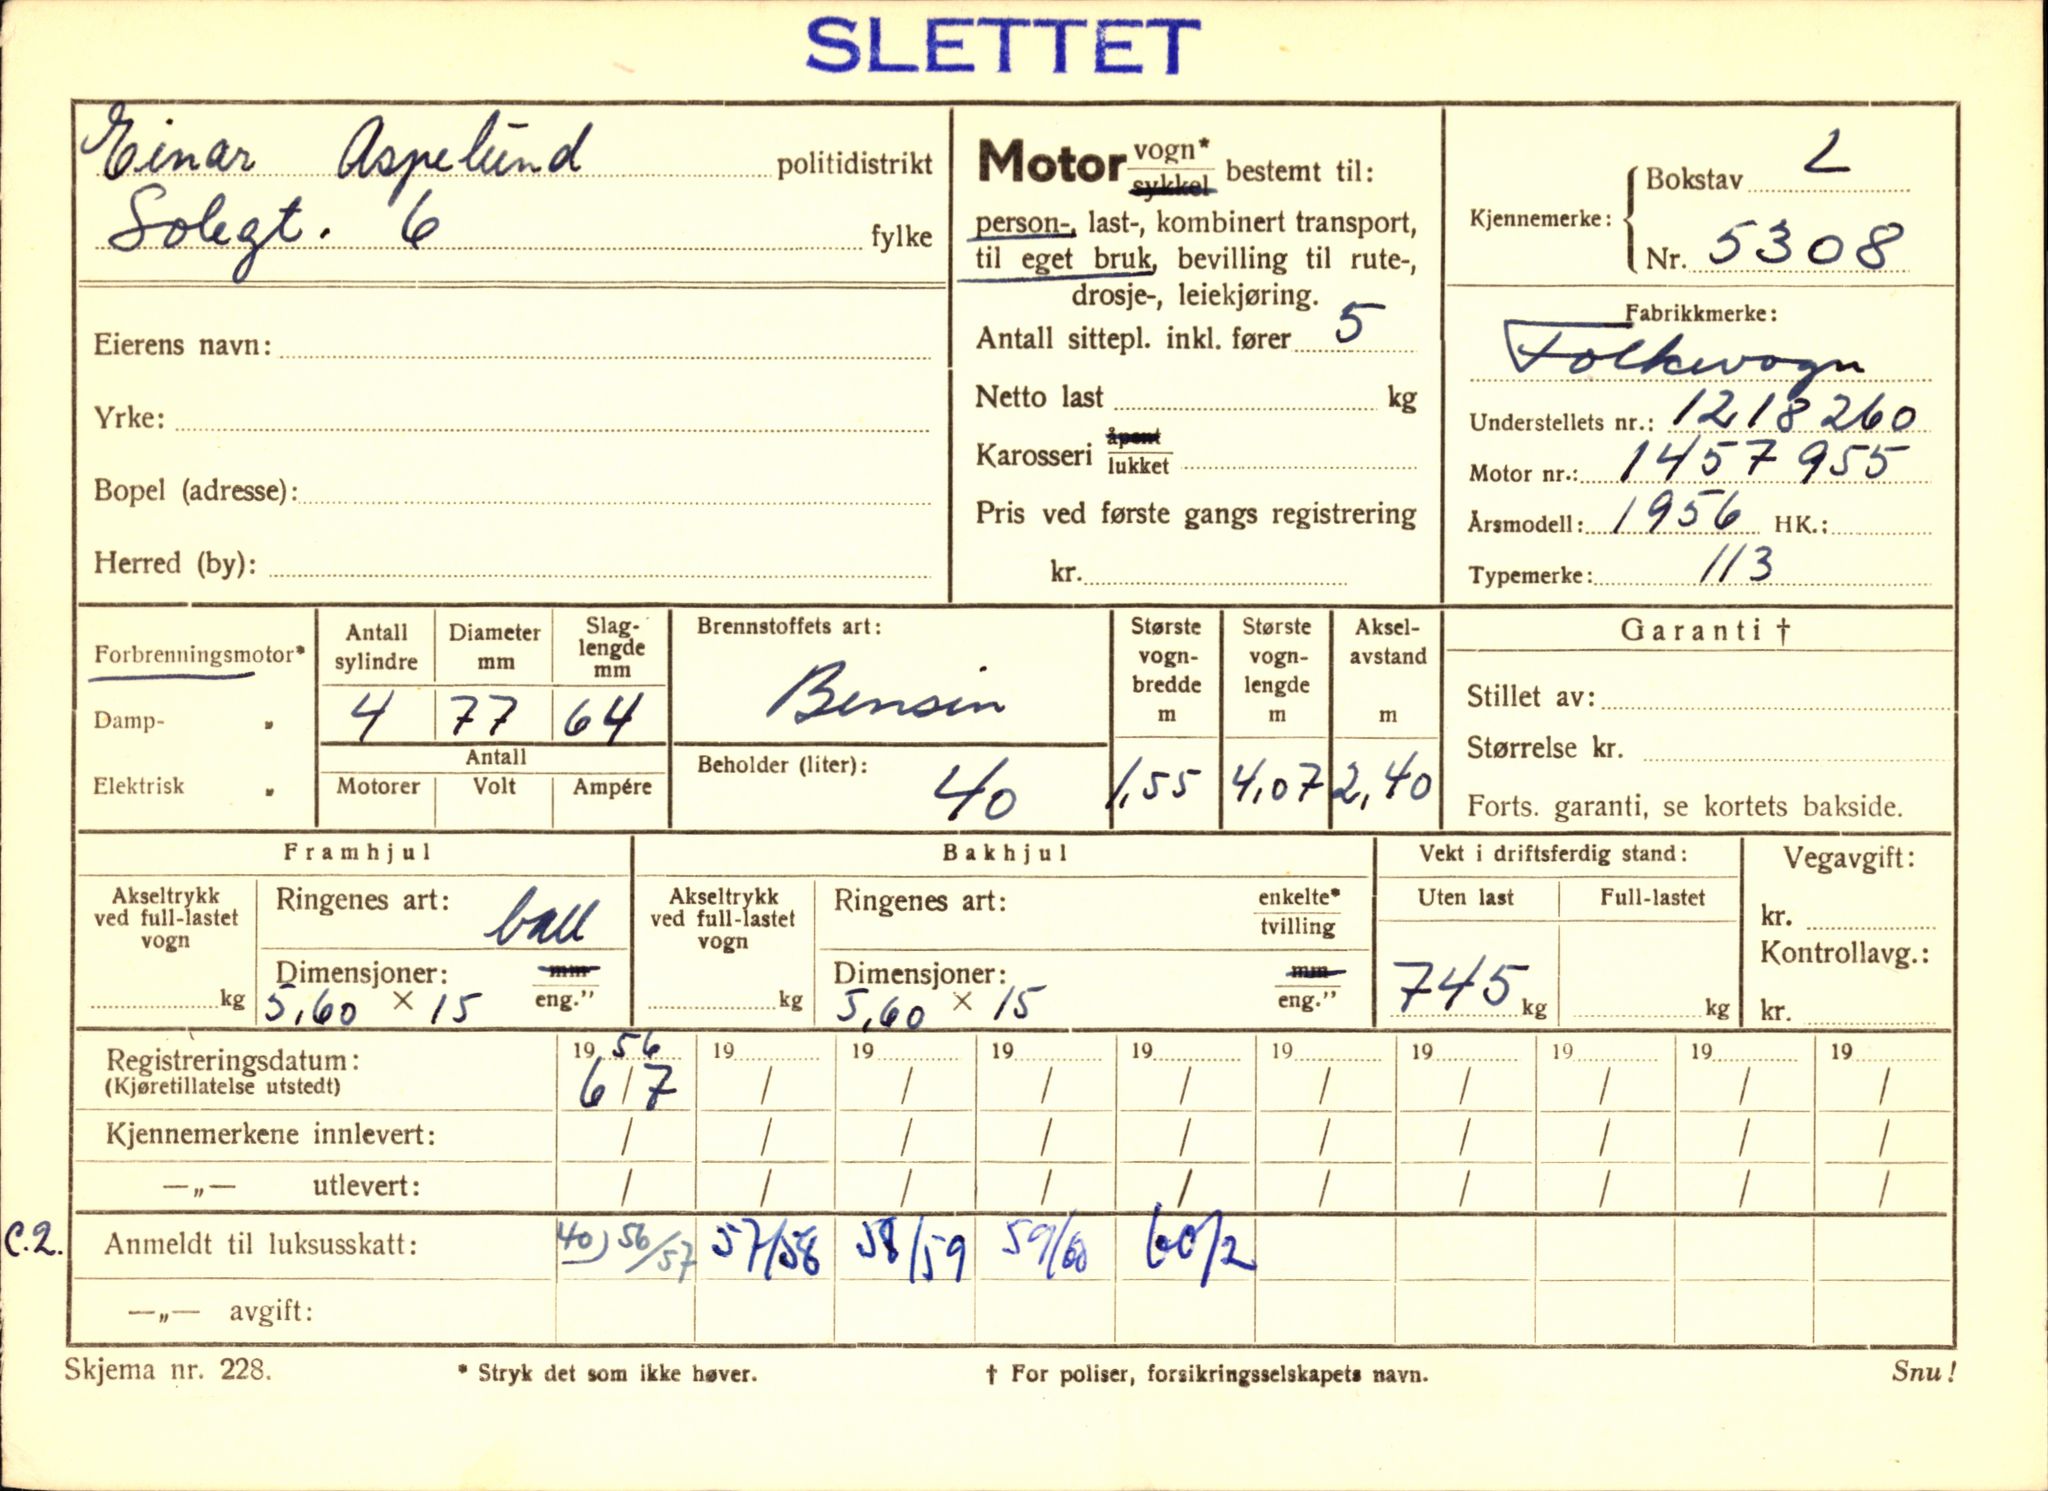 SLETTET
Einar Aspelund politidistrikt
Solegt. 6 fylke
Eierens navn:
Yrke:
Bopel (adresse):
Herred (by):
Motor vogn* sykkel bestemt til:
person-, last-, kombinert transport,
til eget bruk, bevilling til rute-,
drosje-, leiekjøring.
Antall sittepl. inkl. fører 5
Netto last kg
Karosseri åpent lukket
Pris ved første gangs registrering
kr.
Kjennemerke: Bokstav L
Nr. 5308
Fabrikkmerke:
Folkevogn
Understellets nr.: 1218260
Motor nr.: 1457955
Årsmodell: 1956 HK.:
Typemerke: 113
Forbrenningsmotor*
Damp- „
Elektrisk „
Antall sylindre
Diameter mm
Slag-
lengde
mm
4 77 64
Antall
Motorer Volt Ampére
Brennstoffets art:
Bensin
Beholder (liter):
40
Største
vogn-
bredde
m
1,55
Største
vogn-
lengde
m
4,07
Aksel-
avstand
m
2,40
Garanti †
Stillet av:
Størrelse kr.
Forts. garanti, se kortets bakside.
Framhjul
Akseltrykk
ved full-lastet
vogn
kg
Ringenes art: ball
Dimensjoner: mm
5,60 × 15 eng."
Bakhjul
Akseltrykk
ved full-lastet
vogn
kg
Ringenes art: enkelte*
tvilling
Dimensjoner: mm
5,60 × 15 eng."
Vekt i driftsferdig stand:
Uten last Full-lastet
745 kg kg
Vegavgift:
kr.
Kontrollavg.:
kr.
Registreringsdatum: 19 56 19 19 19 19 19 19 19 19 19
(Kjøretillatelse utstedt) 6/7 / / / / / / / / /
Kjennemerkene innlevert: / / / / / / / / / /
—„— utlevert: / / / / / / / / / /
C.2. Anmeldt til luksusskatt: 40) 56/57 57/58 58/59 59/60 60/2
—„— avgift:
Skjema nr. 228. * Stryk det som ikke høver. † For poliser, forsikringsselskapets navn. Snu!